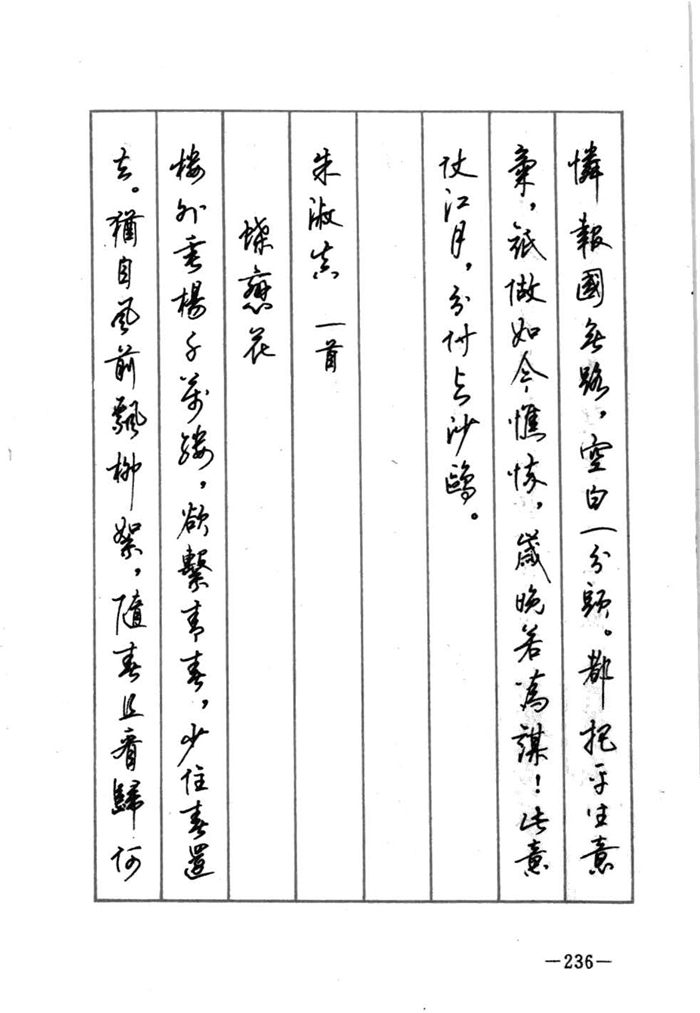 憐報國無路，空白一分頭。都把平生意
氣，祇做如今憔悴，歲晚若為謀！此意
仗江月，分付與沙鷗。
朱淑真 一首
蝶戀花
樓外垂楊千萬縷，欲繫青春，少住春還
去。猶自風前飄柳絮，隨春且看歸何
—236—